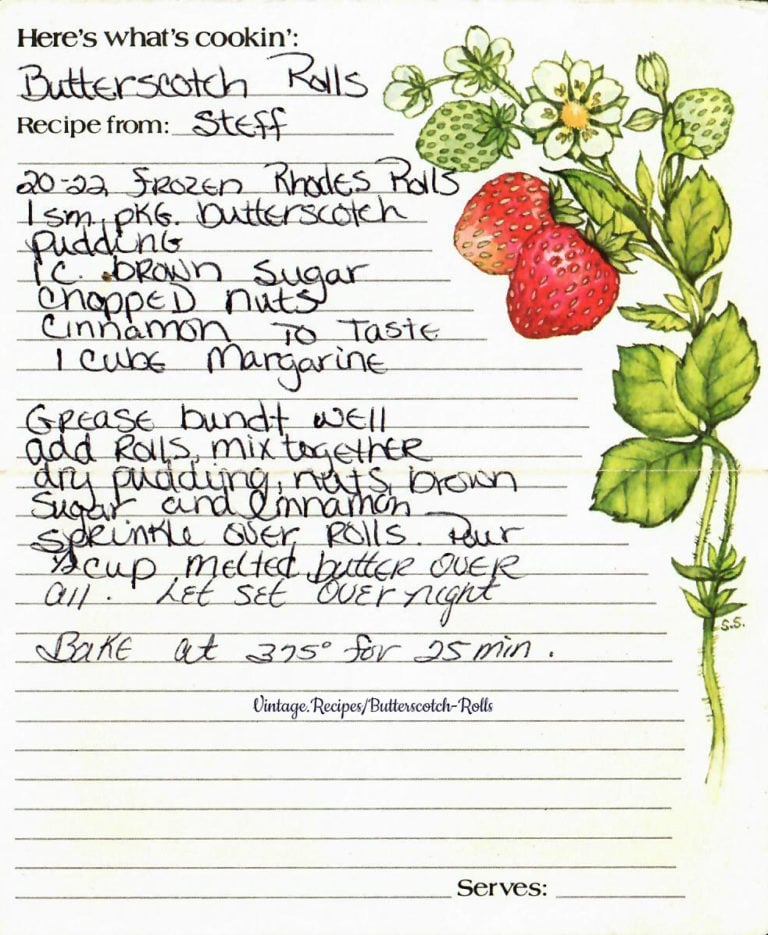 Here's what's cookin':
Butterscotch Rolls
Recipe from: Steff
20-22 frozen Rhodes Rolls
1 sm. pkg. butterscotch
pudding
1 c. brown sugar
chopped nuts
Cinnamon to taste
1 cube Margarine
Grease bundt well
add Rolls, mix together
dry pudding, nuts, brown
sugar and Cinnamon
sprinkle over rolls. Pour
½ cup melted butter over
all. Let set over night
Bake at 375° for 25 min.
S.S.
Vintage.Recipes/Butterscotch-Rolls
Serves: